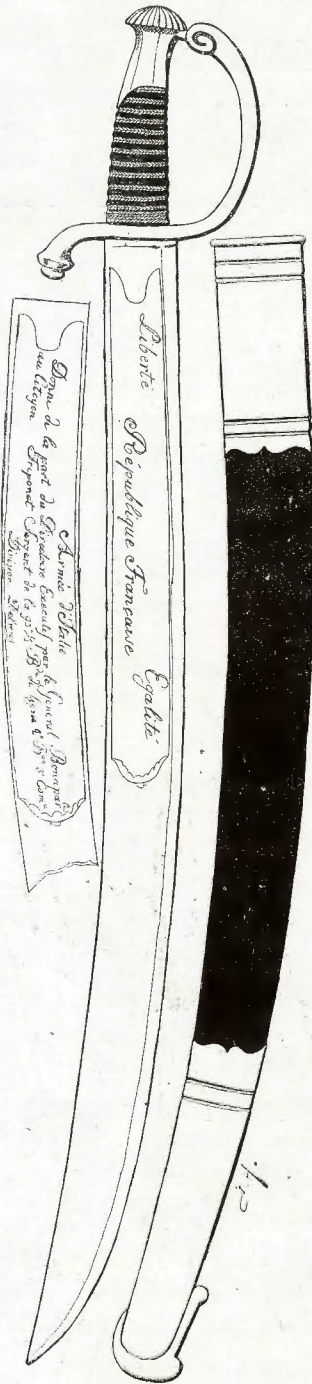 Liberté République Française Egalité
Armée d'Italie
Donné de la part du Directoire Executif par le Général Bonaparte
au Citoyen Sergent de la Brde de ligne
Division